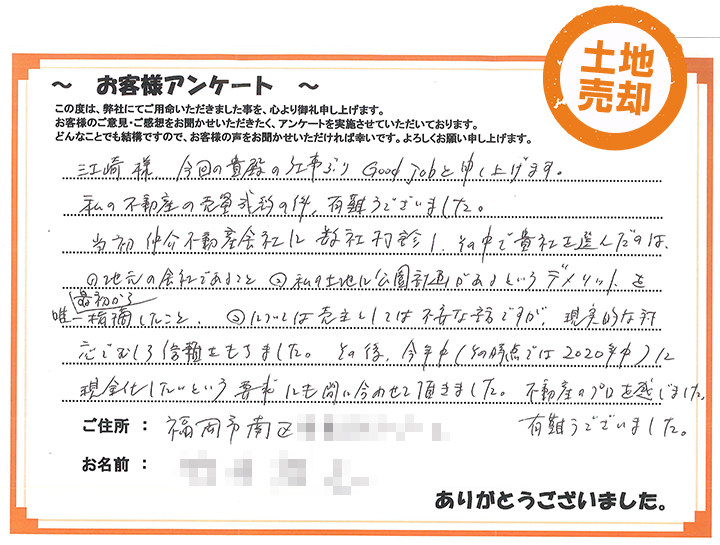 土地
売却
～ お客様アンケート ～
この度は、弊社にてご用命いただきました事を、心より御礼申し上げます。
お客様のご意見・ご感想をお聞かせいただきたく、アンケートを実施させていただいております。
どんなことでも結構ですので、お客様の声をお聞かせいただければ幸いです。よろしくお願い申し上げます。
江崎様 今回の貴殿の仕事ぶり Good jobと申し上げます。
私の不動産の売買成約の件、有難うございました。
当初仲介不動産会社に数社打診し、その中で貴社を選んだのは、
①地元の会社であること ②私の土地に公園計画があるというデメリットを
最初から
唯一指摘したこと、②については売主としては不安な話ですが、現実的な対
応でむしろ信頼をもちました。その後、今年中(その時点では2020年中)に
現金化したいという要求にも間に合わせて頂きました。不動産のプロを感じました。
有難うございました。
ご住所 ： 福岡市南区
お名前 ：
ありがとうございました。